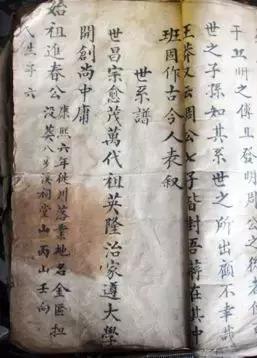 于丑明之傳且發明周公之
世之子孫知其系世之所出顧不幸哉
王莽又云周公七子皆封吾蔣在其中
班固作古今人表叙
世系譜
世昌宗愈茂萬代祖英隆治家遵大學
開創尚中庸
始祖進春公
康熙六年徙川落業地名金區担
没英八步溪祠堂山丙山壬向
人生子六